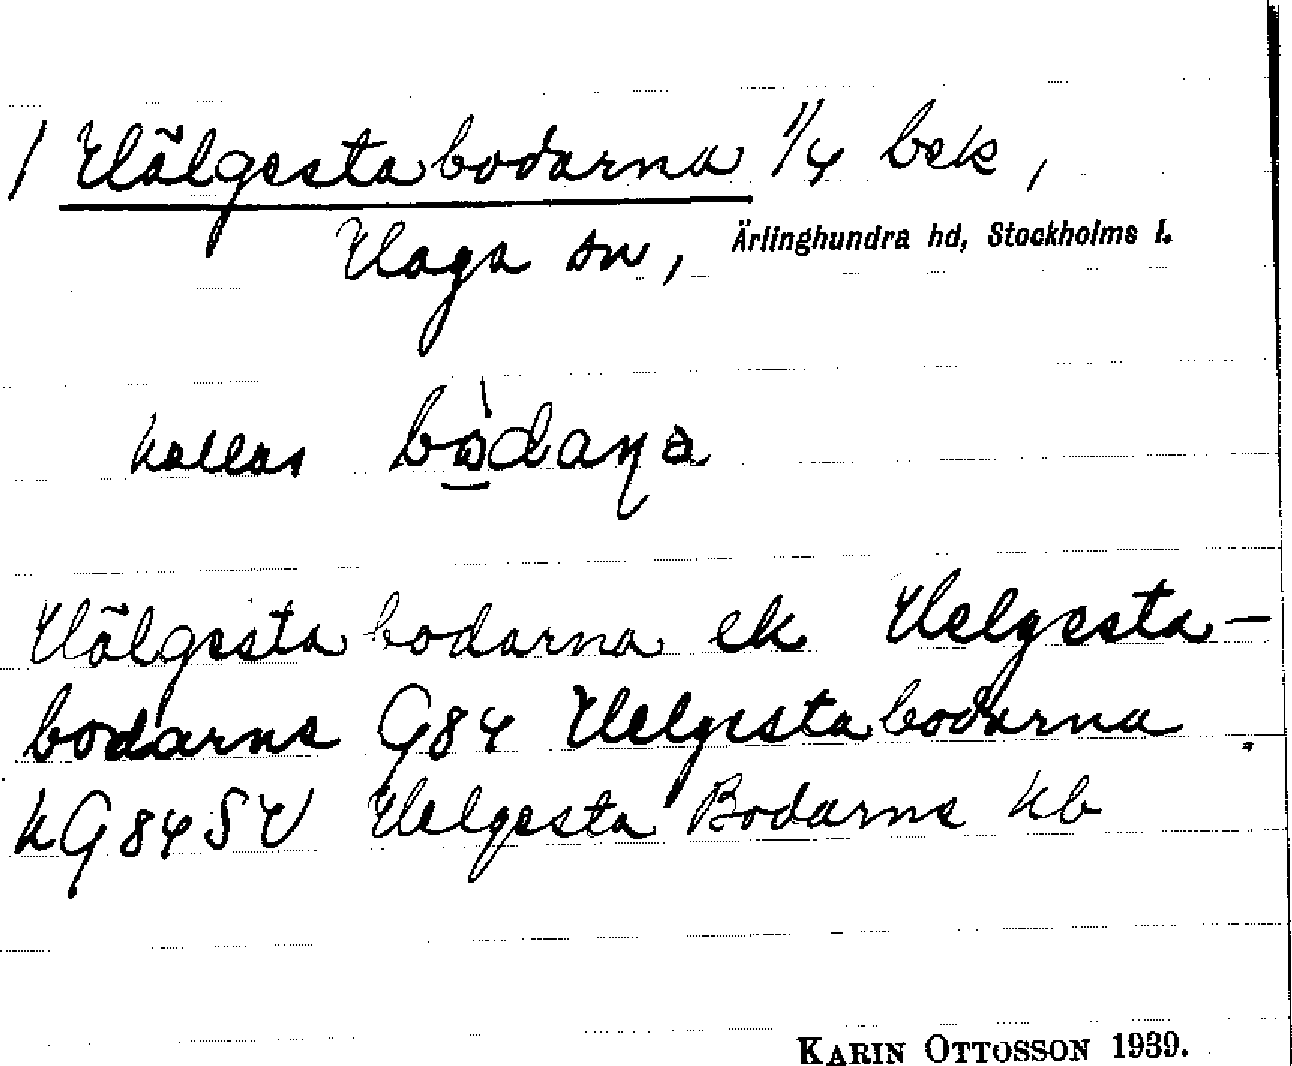 / Hälgestabodarna 1/4 bek,
Haga sn, Ärlinghundra hd, Stockholms l.
kallas bò̲daṇa
Hälgestabodarna ek Helgesta-
bodarne G84 Helgestabodarna
kG84SV Helgesta Bodarne kb
KARIN OTTOSSON 1939.